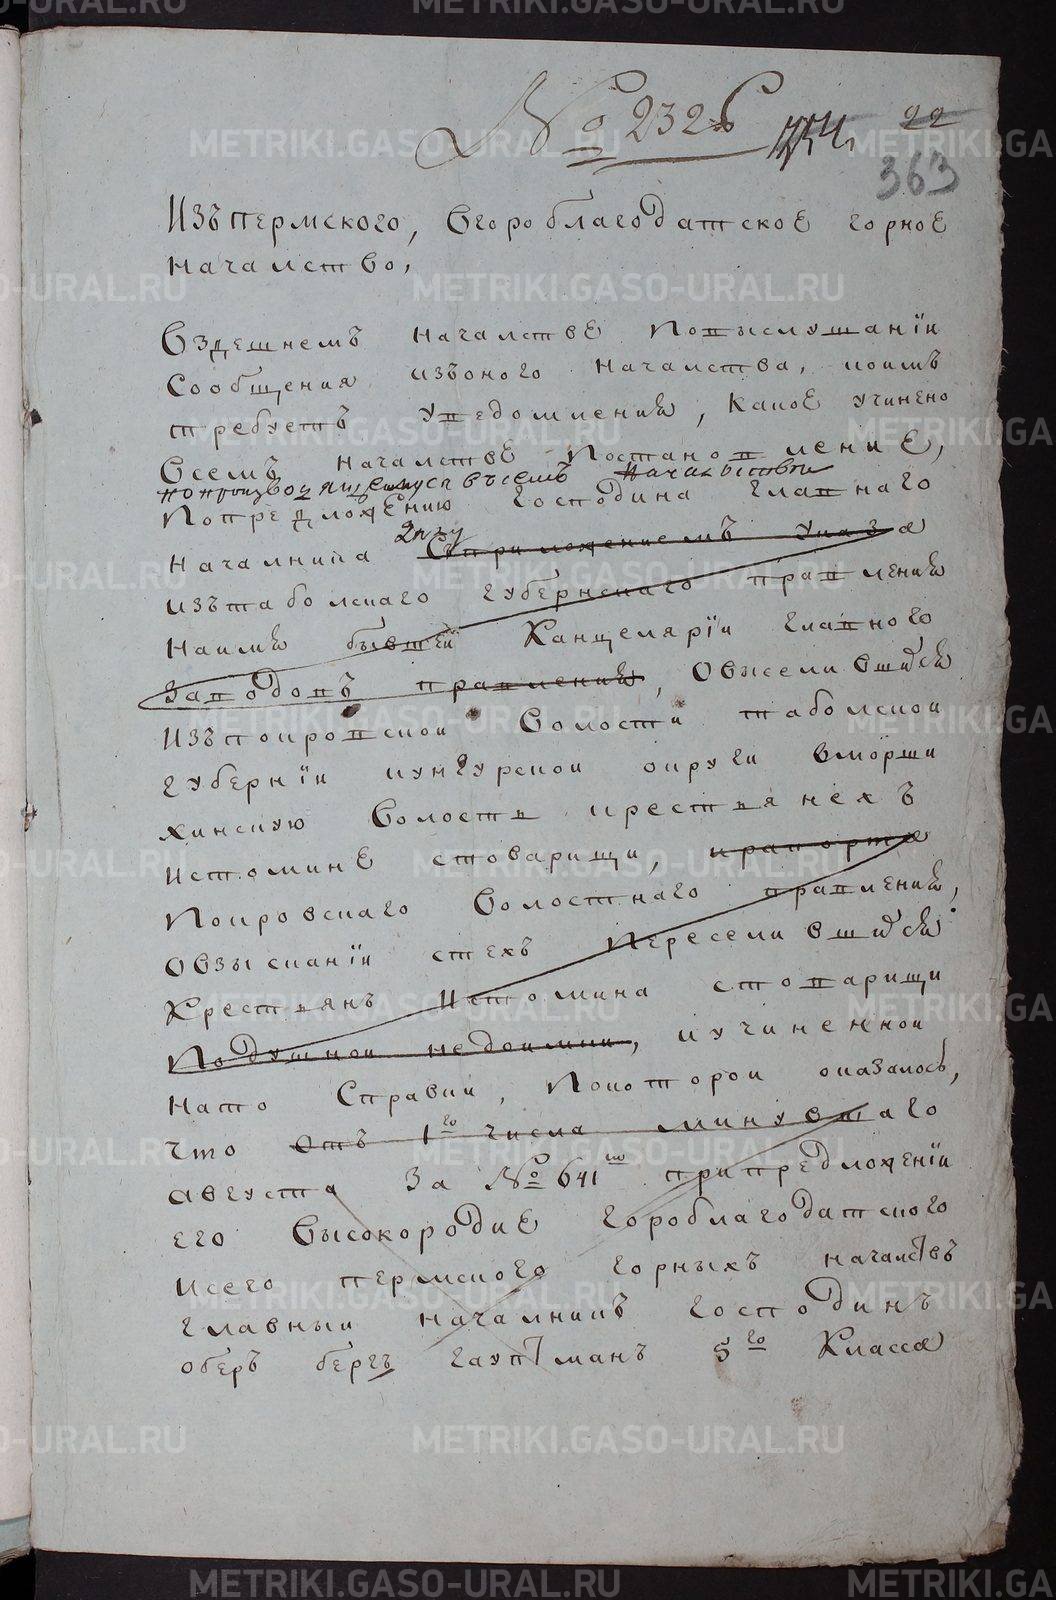 № 2326
22
363
Изъ пермского, вгороблагодатское горное
началство,
Вздешнемъ началстве повыслушанїи
сообщения изъоного началства, коимъ
требуетъ уведомления, какое учинено
всемъ началстве постановление,
попредложению господина главного
началника Сприложениемъ указа
изътаболскаго губернскаго правления
Наимя бывшей Канцелярїи главного
заводовъ правления, Овыселившихся
Изъпокровской волости таболской
губернїи кунгурской округи вморши
хинскую волость крестьянехъ
Истомине стоварищи, крапорта
Покровскаго волостнаго правления,
Овзысканїи стехъ переселившихся
Крестьянъ Истомина стоварищи
Подушной недоимки, иучиненной
Нато Справки, Покоторой оказалось,
что отъ 1го числа минувшаго
августа за № 641мъ припредложенїи
его Высокородие гороблагодатского
исего пермского горныхъ началствъ
главный началникъ господинъ
оберъ бергъ гауптманъ 5го Класса